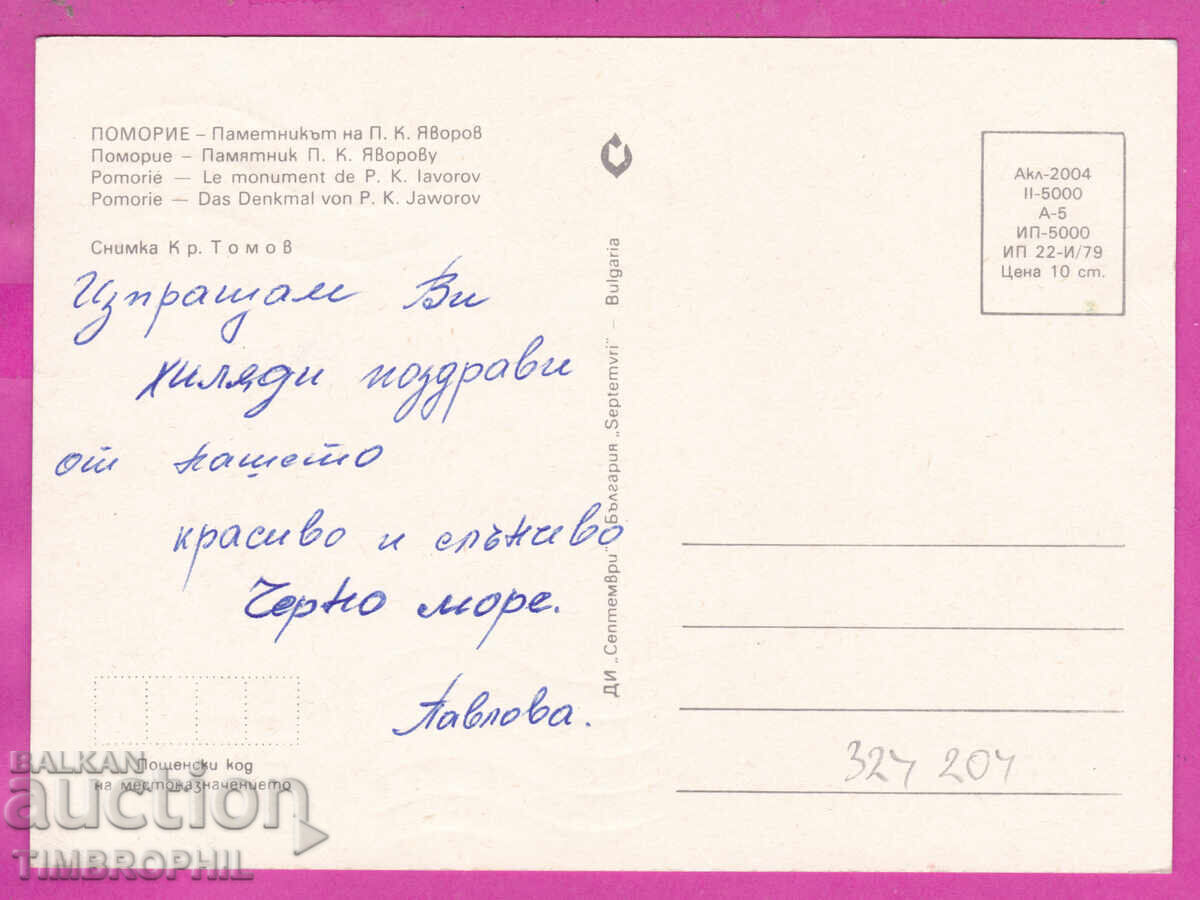 ПОМОРИЕ – Паметникът на П. К. Яворов
Поморие – Памятник П. К. Яворову
Pomorié — Le monument de P. K. Iavorov
Pomorie — Das Denkmal von P. K. Jaworov
Снимка Кр. Томов
Изпращам Ви
хиляди поздрави
от нашето
красиво и слънчево
Черно море.
Павлова.
Пощенски код
на местоназначението
ДИ „Септември" България „Septemvri" – Bulgaria
Акл-2004
II-5000
А-5
ИП-5000
ИП 22-И/79
Цена 10 ст.
324 204
BALKAN
auction
TIMBROPHIL